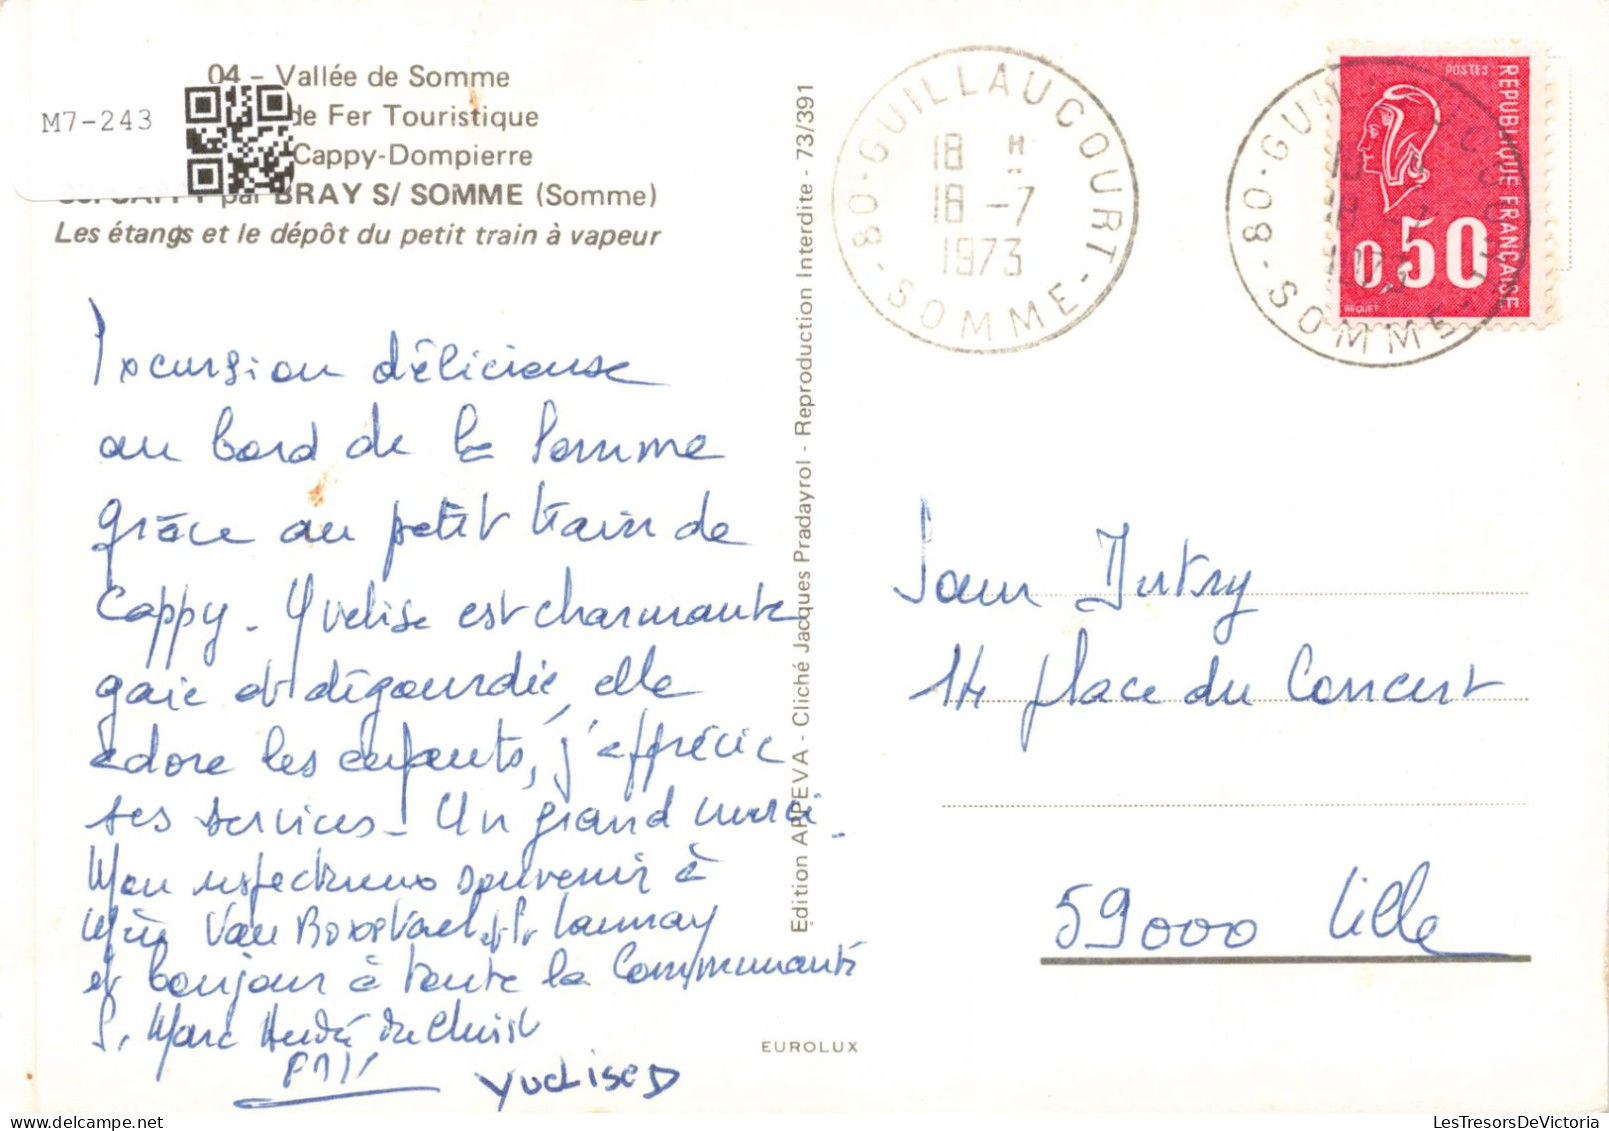 04 - Vallée de Somme
M7-243
de Fer Touristique
Cappy-Dompierre
par BRAY S/ SOMME (Somme)
Les étangs et le dépôt du petit train à vapeur
Excursion délicieuse
au bord de la Somme
grâce au petit train de
Cappy - Yvelise est charmante
gaie et dégourdie, elle
adore les enfants, j'apprécie
ses services - Un grand merci.
Mon respectueux souvenir à
Mère Van et Sr Launay
et bonjour à toute la Communauté
S. Marc du Christ
Yvelise D
Edition APPEVA - Cliché Jacques Pradayrol - Reproduction Interdite - 73/391
EUROLUX
80 - GUILLAUCOURT - SOMME -
18 H
18 - 7
1973
80 - GUILLAUCOURT - SOMME -
18 H
18 - 7
1973
POSTES
REPUBLIQUE FRANÇAISE
0,50
BEQUET
14 place du Concert
59000 Lille
LesTresorsDeVictoria.com